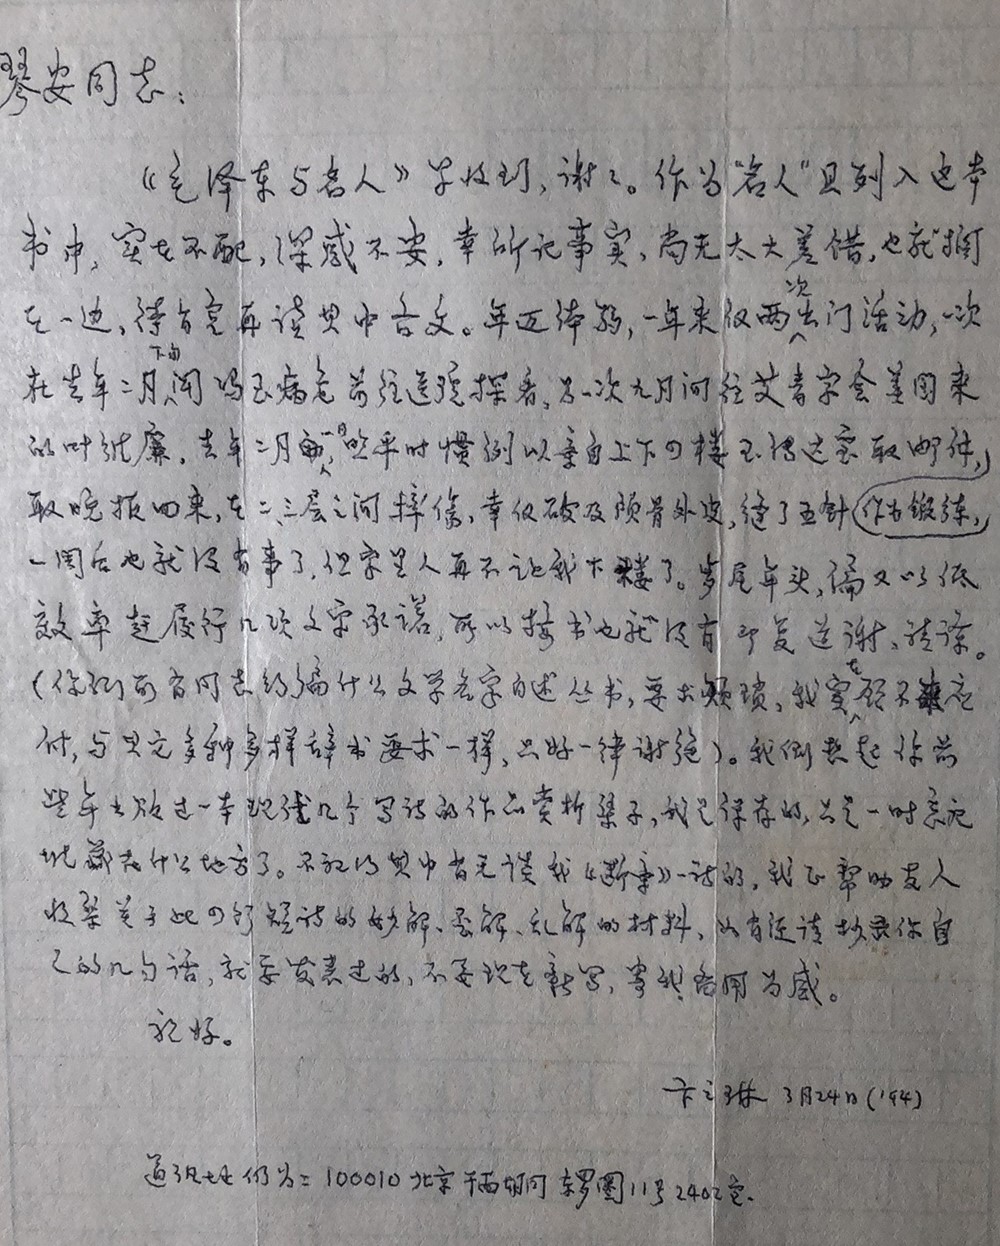 琴安同志：
《毛泽东与名人》早收到，谢谢。作为“名人”且列入这本
书中，实在不配，深感不安，幸所记事实，尚无太大差错，也就搁
在一边，待有空再读其中各文。年迈体弱，一年来仅两次出门活动，一次
在去年二月下旬闻冯至病危前往医院探看，另一次九月间往艾青家会美国来
的叶维廉。去年二月，照平时惯例以亲自上下四楼至传达室取邮件，
取晚报回来，在二、三层之间摔伤，幸仅破及颅骨外皮，缝了五针作为锻练，
一周后也就没有事了，但家里人再不让我下楼了。岁尾年头，偏又以低
效率赶履行几项文字承诺，所以接书也就没有即复道谢，请谅。
（你们所有同志约编什么文学名家自述丛书，要求烦琐，我实在顾不应
付，与其它多种多样辞书要求一样，只好一律谢绝）。我倒想起你前
些年出版过一本现代几个写诗的作品赏析集子，我是保存的，只是一时忘记
收藏在什么地方了。不记得其中有无谈我《断章》一诗的，我正帮助友人
收集关于此四行短诗的妙解、歪解、乱解的材料，如有还请抄录你自
己的几句话，就要发表过的，不要现在新写，寄我备用为感。
祝好。
卞之琳 3月24日（'94）
通讯地址仍为：100010 北京干面胡同东罗圈11号2402室.